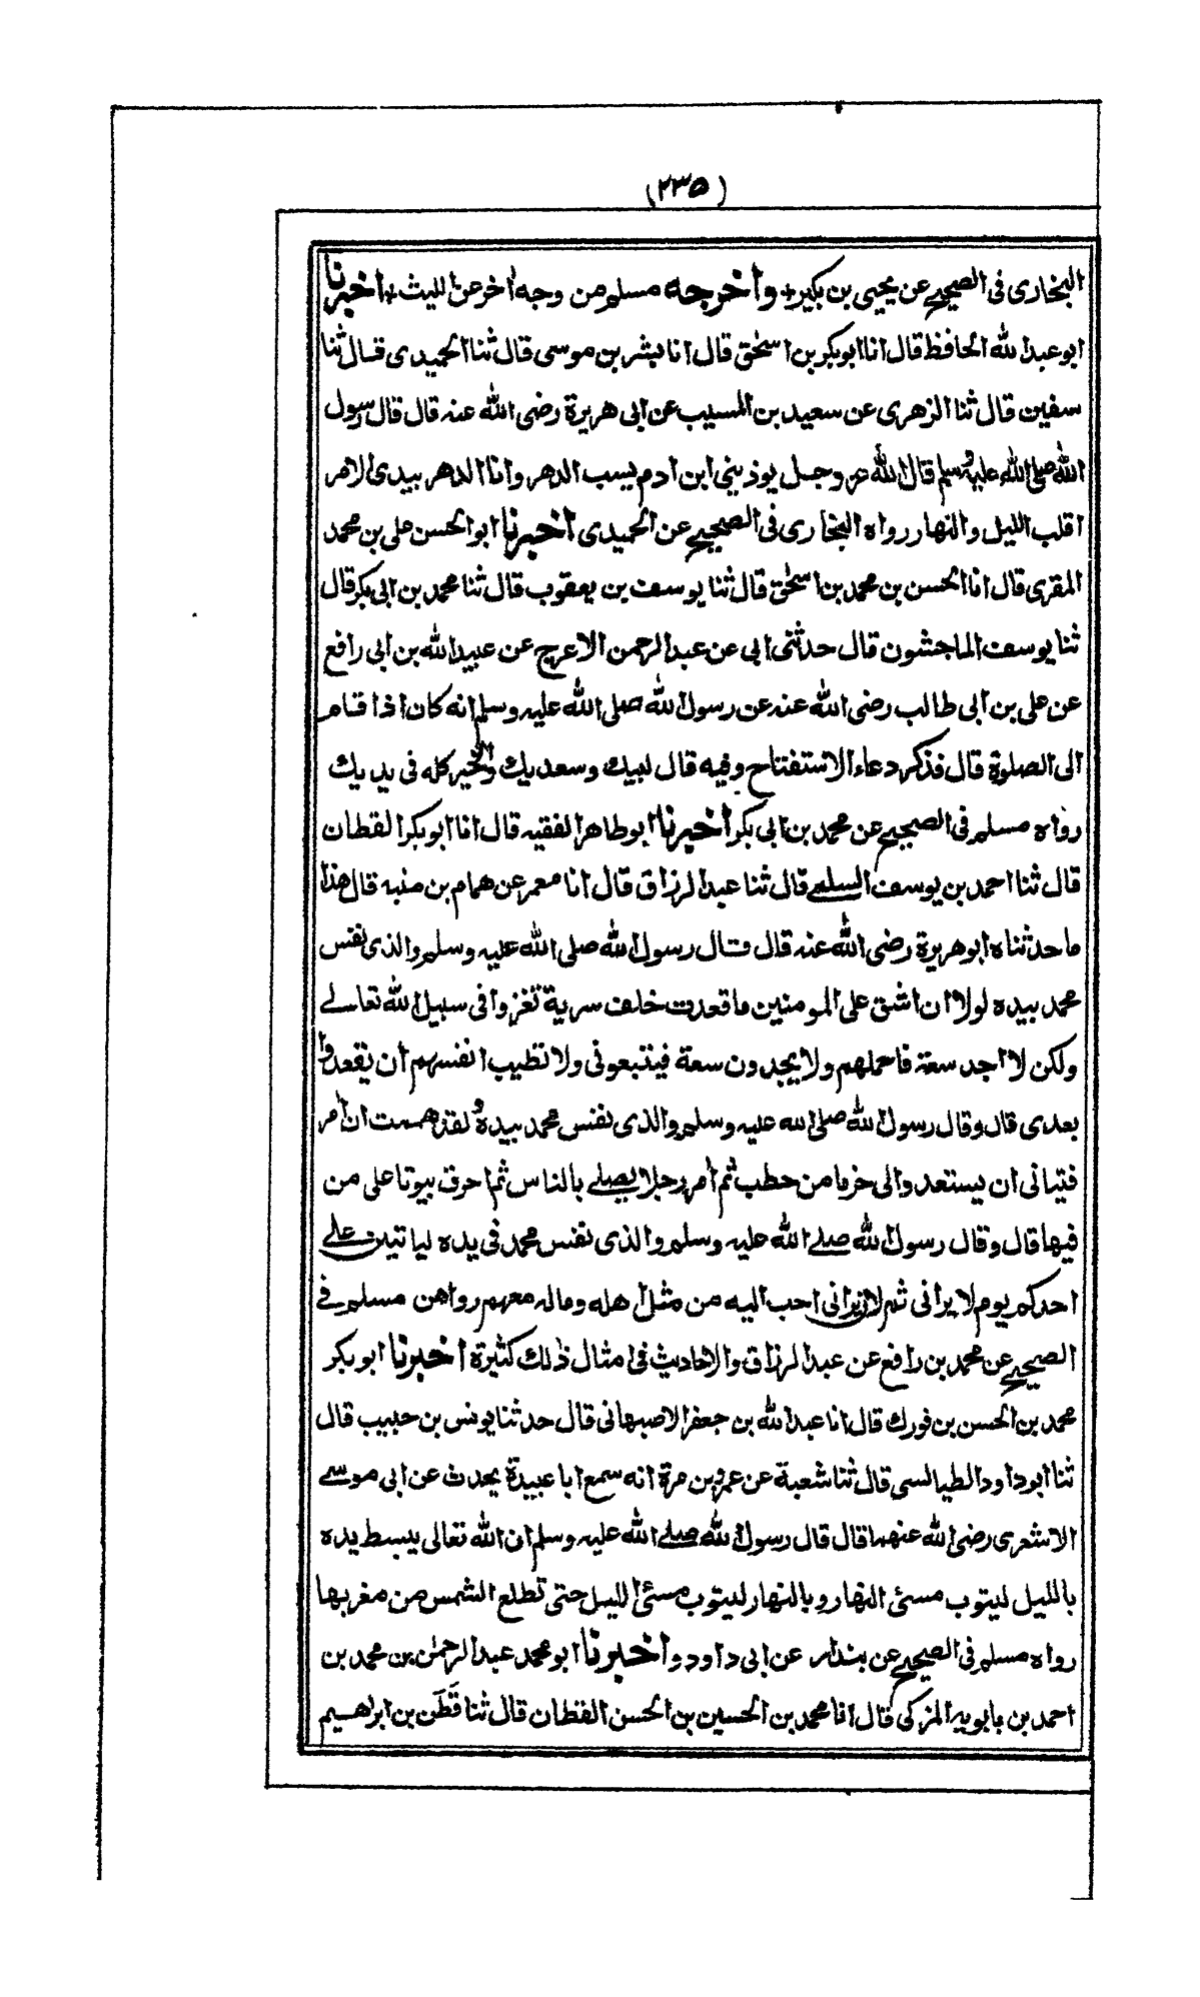 (٢٣٥)
البخارى فى الصحيح عن يحيى بن بكير+ واخرجه مسلم من وجه اٰخر عن الليث+ اخبرنا
ابو عبد الله الحافظ قال انا ابو بكر بن اسحٰق قال انا بشر بن موسى قال ثنا الحميدى قال ثنا
سفين قال ثنا الزهرى عن سعيد بن المسيب عن ابى هريرة رضى الله عنه قال قال رسول
الله صلى الله عليه وسلم قال الله عز وجل يوذينى ابن ادم يسب الدهر وانا الدهر بيدى الامر
اقلب الليل والنهار رواه البخارى فى الصحيح عن الحميدى اخبرنا ابو الحسن على بن محمد
المقرى قال انا الحسن بن محمد بن اسحٰق قال ثنا يوسف بن يعقوب قال ثنا محمد بن ابى بكر قال
ثنا يوسف الماجشون قال حدثنى ابى عن عبد الرحمن الاعرج عن عبيد الله بن ابى رافع
عن على بن ابى طالب رضى الله عنه عن رسول الله صلى الله عليه وسلم انه كان اذا قام
الى الصلوة قال فذكر دعاء الاستفتاح وفيه قال لبيك وسعديك والخير كله فى يديك
رواه مسلم فى الصحيح عن محمد بن ابى بكر اخبرنا ابو طاهر الفقيه قال انا ابو بكر القطان
قال ثنا احمد بن يوسف السلمے قال ثنا عبد الرزاق قال انا معمر عن همام بن منبه قال هذا
ما حدثناه ابو هريرة رضى الله عنه قال قال رسول الله صلى الله عليه وسلم والذى نفس
محمد بيده لولا ان اشق على المومنين ما قعدت خلف سرية تغزوا فى سبيل الله تعالے
ولكن لا اجد سعة فاحملهم ولا يجدون سعة فيتبعونى ولا تطيب انفسهم ان يقعدوا
بعدى قال وقال رسول الله صلى الله عليه وسلم والذى نفس محمد بيده لقد هممت ان اٰمر
فتيانى ان يستعدوا لى حزما من حطب ثم اٰمر رجلا يصلے بالناس ثم احرق بيوتا على من
فيها قال وقال رسول الله صلے الله عليه وسلم والذى نفس محمد فى يده لياتين علے
احدكم يوم لا يرانى ثم لان يرانى احب اليه من مثل اهله وماله معهم رواهن مسلم فے
الصحيح عن محمد بن رافع عن عبد الرزاق والاحاديث فى امثال ذلك كثيرة اخبرنا ابو بكر
محمد بن الحسن بن فورك قال انا عبد الله بن جعفر الاصبهانى قال حدثنا يونس بن حبيب قال
ثنا ابو داود الطيالسى قال ثنا شعبة عن عمرو بن مرة انه سمع ابا عبيدة يحدث عن ابى موسے
الاشعرى رضى الله عنهما قال قال رسول الله صلے الله عليه وسلم ان الله تعالى يبسط يده
بالليل ليتوب مسئ النهار وبالنهار ليتوب مسئ الليل حتى تطلع الشمس من مغربها
رواه مسلم فى الصحيح عن بندار عن ابى داود واخبرنا ابو محمد عبد الرحمٰن بن محمد بن
احمد بن بابويه المزكى قال انا محمد بن الحسين بن الحسن القطان قال ثنا قَطَن بن ابراهيم